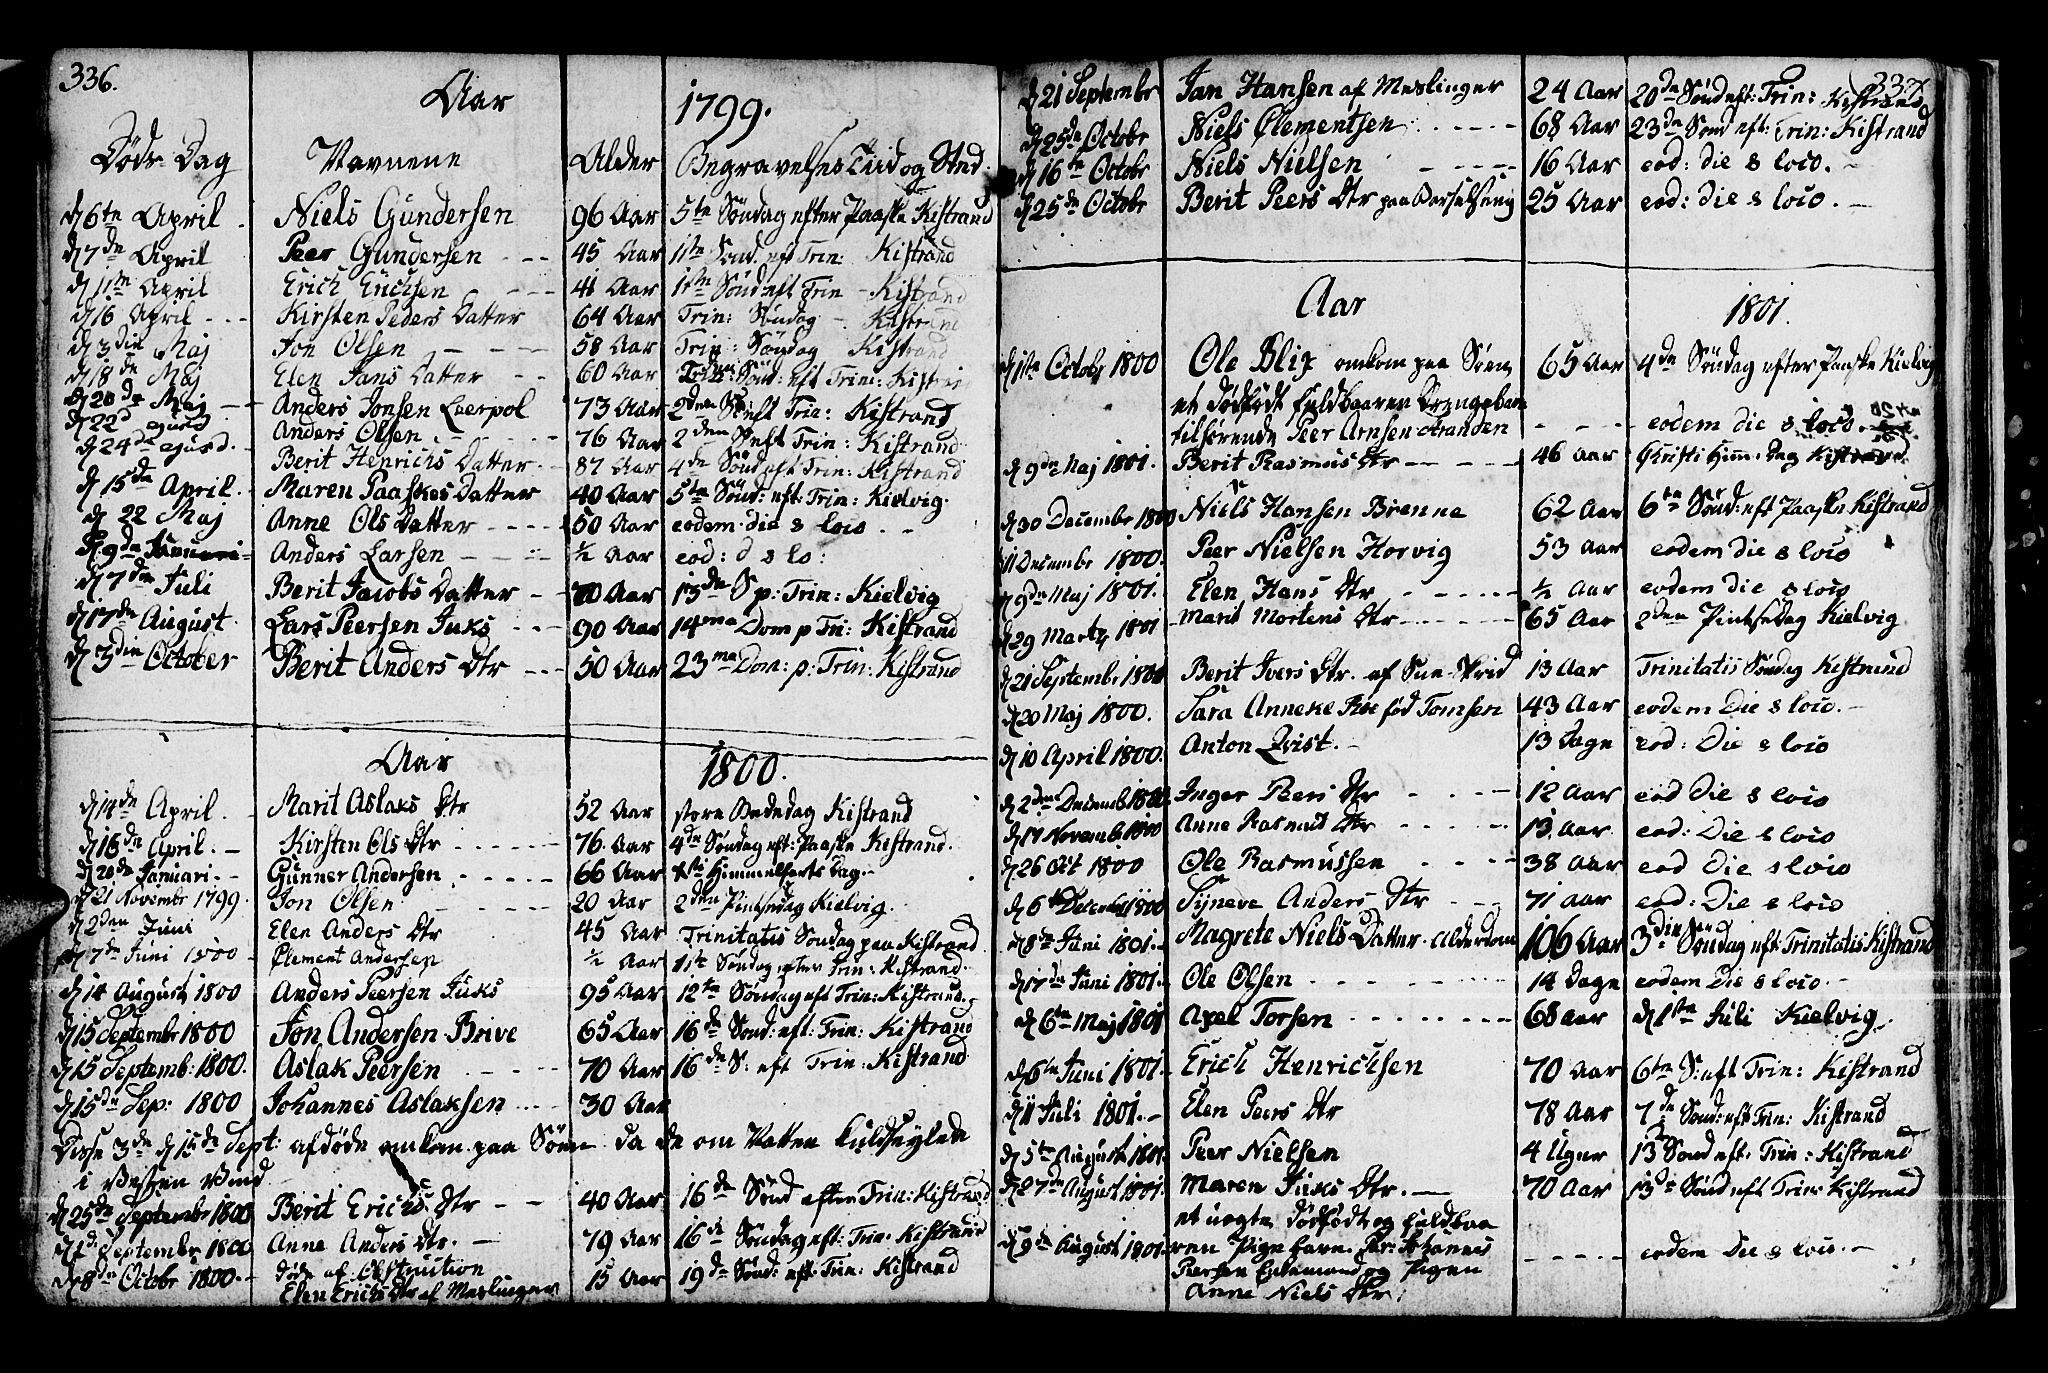 336.
Aar 1799.
Døds Dag Navnene Alder Begravelses Tiid og Sted.
d 6te April Niels Gundersen 96 Aar 5te Søndag efter Paaske Kistrand
d 7de April Peer Gundersen 45 Aar 1ste Sønd. eft Trin: Kistrand
d 11te April Erich Erichsen 41 Aar 1ste Sønd eft Trin Kistrand
d 16 April Kirsten Peders Datter 64 Aar Trin: Søndag Kistrand
d 3die Maj Jon Olsen 58 Aar Trin: Søndag Kistrand
d 18de Maj Elen Jans Datter 60 Aar Sønd: eft Trin: Kistrand
d 20de Maj Anders Jonsen Leerpol 73 Aar 2den S eft Trin: Kistrand
d 22d ejusd Anders Olsen 76 Aar 2den S eft Trin: Kistrand
d 24de ejusd. Berit Henrichs Datter 87 Aar 4de Sønd eft Trin: Kistrand
d 15de April. Maren Paaskes Datter 40 Aar 5te Sønd: eft: Trin: Kielvig.
d 22 Maj Anne Ols Datter 50 Aar eodem die & loco
d 9de Januari Anders Larsen ½ Aar eod: d & lo:
d 7de Juli Berit Jacobs Datter 70 Aar 13de S p: Trin: Kielvig
d 17de August Lars Peersen Juks 90 Aar 14ma Dom p Tri: Kistrand
d 3die October Berit Anders Dtr 50 Aar 23ma Dom: p: Trin: Kistrand
Aar 1800.
d 14de April. Marit Aslaks Dtr 52 Aar store Bededag Kistrand
d 16de April. Kirsten Ols Dtr 76 Aar 4de Søndag eft: Paaske Kistrand.
d 20de Januari. Gunner Andersen 66 Aar Xsti Himmelferts Dag.
d 21 Novembr 1799. Jon Olsen 20 Aar 2den Pintsedag Kielvig.
d 2den Juni Elen Anders Dtr 45 Aar Trinitatis Søndag paa Kistrand
d 7de Juni 1800 Clement Andersen ½ Aar 11te Søndag efter Trin: Kistrand.
d 14 August 1800 Anders Peersen Juks 95 Aar 12te Søndag eft Trin: Kistrand
d 15 September 1800 Jon Andersen Brive 65 Aar 16de Sønd: eft: Trin: Kistrand
d 15 Septemb: 1800. Aslak Peersen 70 Aar 16de S: eft Trin: Kistrand
d 15de Sep: 1800 Johannes Aslaksen 30 Aar
Disse 3de d 15de Sept: afdøde omkom paa Søen da de om Natten kuldseylede
i Vesten Vind
d 25de Septembr 1800 Berit Erichs Dtr 40 Aar 16de Sønd efter Trin: Kistrand
Septembr 1800 Anne Anders Dtr. 79 Aar 16de Søndag eft: Trin: Kistrand
d 8de Octobr 1800. døde af Obstruction 15 Aar 19de Sønd: eft: Trin: Kistrand
Elen Erichs Dtr af Maslinger
337
d 21 Septembr Jan Hansen af Meslinger 24 Aar 20de Sønd eft: Trin: Kistrand
d 25de Octobr Niels Clementsen 68 Aar 23de Sønd eft: Trin: Kistrand
d 16te Octobr Niels Nielsen 16 Aar eod: die & loco.
d 25de Octobr Berit Peers Dtr paa Barselseng 25 Aar eod: die & loco.
Aar 1801.
d 1ste Octobr 1800 Ole Blix omkom paa Søen 65 Aar 4de Søndag efter Paaske Kielvig
et dødfødt fuldbaaren Drengebarn
tilhørende Peer Arnsen Stranden eodem die & loco.
d 9de Maj 1801. Berit Rasmus Dtr 46 Aar Christi Him: Dag Kistrand.
d 30 December 1800 Niels Hansen Brenne 62 Aar 6te Sønd: eft Paaske Kistrand
Decembr 1800. Peer Nielsen Horvig 53 Aar eodem die & loco
d 9de Maj 1801. Elen Hans Dtr ½ Aar eodem die & loco
d 29 Marty 1801 Marit Mortens Dtr 65 Aar 2den Pintsedag Kielvig
d 21 Septembr 1800 Berit Ivers Dtr. af 13 Aar Trinitatis Søndag Kistrand
d 20 Maj 1800. Sara Anneke født Tomsen 43 Aar eodem Die & loco.
d 10 April 1800. Anton Qvist. 13 Dage eod: Die & loco
d 2den Decemb 1800. Inger Peers Dtr 12 Aar eod Die & loco
d 17 Novemb 1800 Anne Rasmus Dtr 13 Aar eod: Die & loco
d 26 Oct 1800 Ole Rasmussen 38 Aar eod Die & loco
d 6te Decemb 1800 Syneve Anders Dtr 71 Aar eod: Die & loco
d 8de Juni 1801. Magrete Niels Datter. Alderdom 106 Aar 3die Søndag eft Trinitatis Kistrand
d 17de Juni 1801. Ole Olsen 14 Dage eodem Die & loco.
d 6te Maj 1801 Axel Torsen 68 Aar d 1ste Juli Kielvig.
d 6te Juni 1801. Erich Henrichsen 70 Aar 6te S: eft Trin: Kistrand
d 11 Juli 1801. Elen Peers Dtr 78 Aar 7de Sønd: eft Trin: Kistrand
d 5te August 1801. Peer Nielsen 4 Uger 13de Sønd eft. Trin: Kistrand
d 27de August 1801. Maren Juks Dtr. 70 Aar 13de Sønd eft Trin: Kistrand
et uægte dødfødt og fuldbaa
d 9de August 1801. ren Pige barn. For: Johannes eodem Die & loco.
Peersen og Pigen
Anne Niels Dtr.